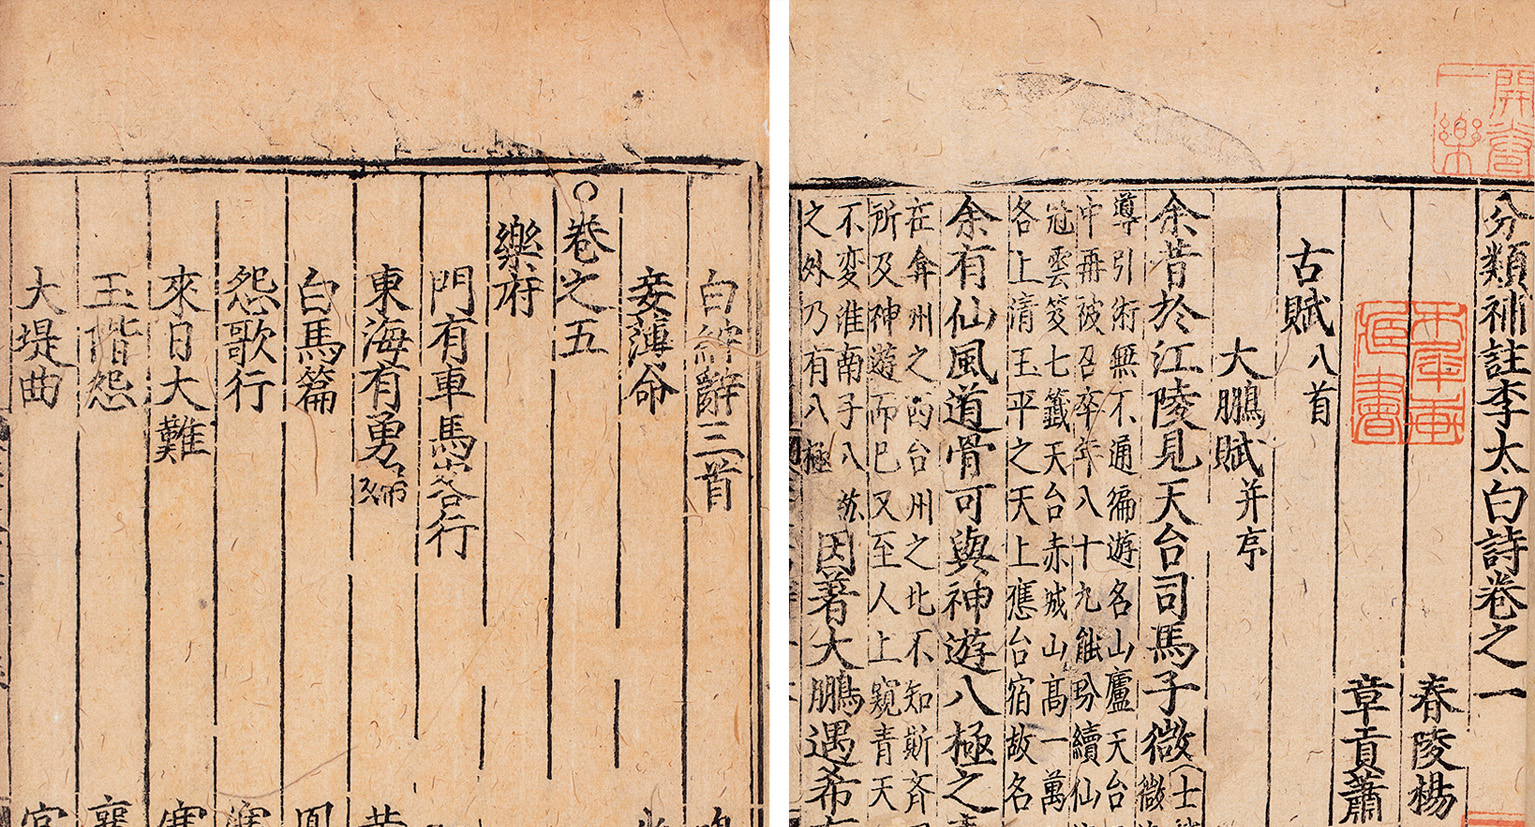 開卷一樂
分類補註李太白詩卷之一
春陵楊
章貢蕭
古賦八首
大鵬賦并序
余昔於江陵見天台司馬子微士
導引術無不通徧遊名山廬天台
中再被召卒年八十九 續仙
冠雲笈七籤天台赤城山高一萬
各上清玉平之天上應台宿故名
余有仙風道骨可與神遊八極之
在弇州之西台州之北不知斯齊
所及神遊而已又至人上窺青天
不變淮南子八紘
之外乃有八極
因著大鵬遇希
白紵辭三首
妾薄命
○卷之五
樂府
門有車馬客行
東海有勇婦
白馬篇
怨歌行
來日大難
玉階怨
大堤曲